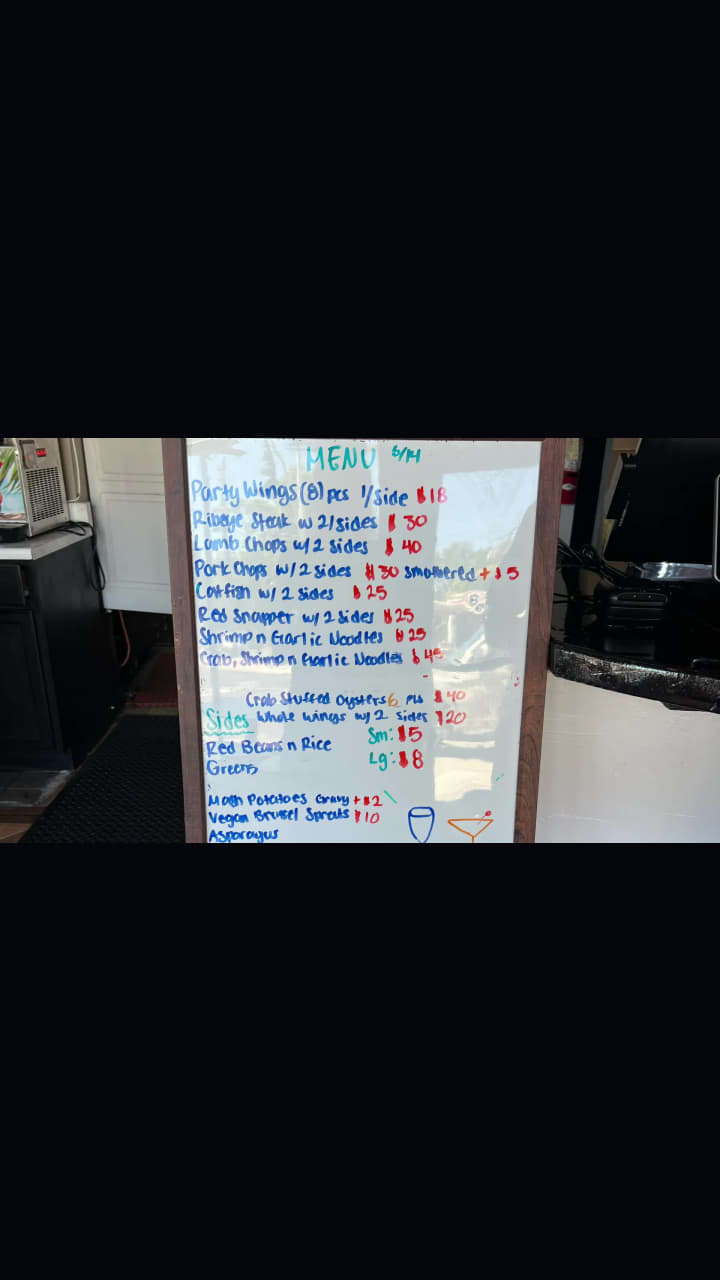 MENU 6/14
Party Wings (8) pcs 1/side $18
Ribeye Steak w 2/sides $30
Lamb Chops w/ 2 sides $40
Pork Chops w/ 2 sides $30 smothered + $5
Catfish w/ 2 sides $25
Red Snapper w/ 2 sides $25
Shrimp n Garlic Noodles $25
Crab, Shrimp n Garlic Noodles $45
Crab Stuffed Oysters 6 pcs $40
Whole wings w/ 2 sides $20
Sides
Sm: $5
Red Beans n Rice
Lg: $8
Greens
Mash Potatoes Gravy + $2
Vegan Brussel Sprouts $10
Asparagus